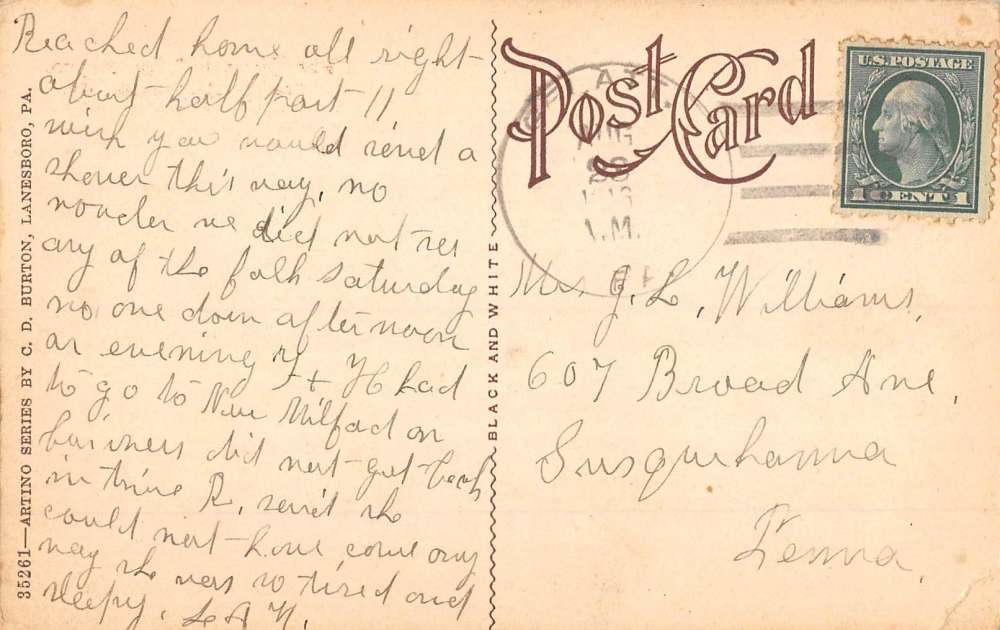 35261—ARTINO SERIES BY C. D. BURTON, LANESBORO, PA.
Reached home all right
about half past 11
wish you would send a
shower this way, no
wonder we did not see
any of the folk saturday
no one down afternoon
or evening F + H had
to go to New Milford on
business did not get back
in time R. said she
could not have come any
way she was so tired and
sleepy. L A N.
BLACK AND WHITE
POST CARD
AUG
28
A.M.
U.S. POSTAGE
1 CENT 1
Mrs J. L. Williams,
607 Broad Ave,
Susquehanna
Penna.